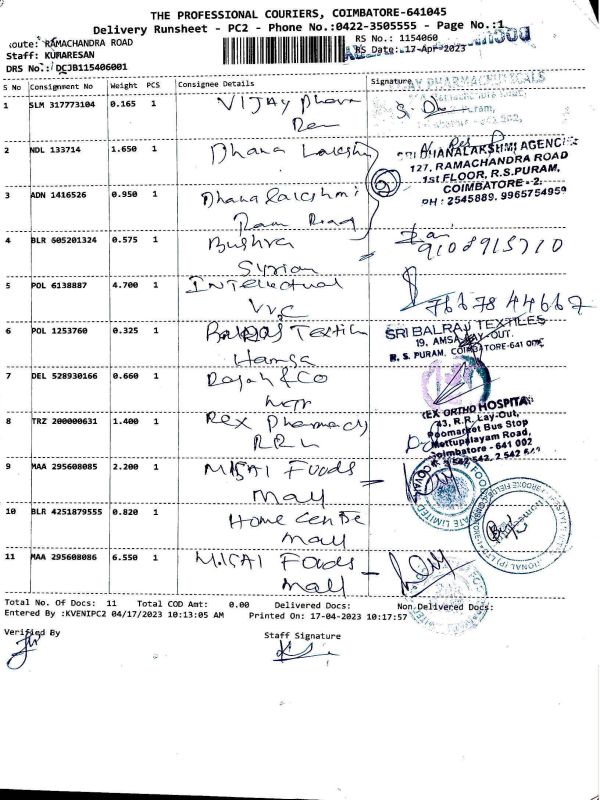 THE PROFESSIONAL COURIERS, COIMBATORE-641045
Delivery Runsheet - PC2 - Phone No.:0422-3505555 - Page No.:1
Route: RAMACHANDRA ROAD
RS No.: 1154060
Staff: KUMARESAN
RS Date: 17-Apr-2023
DRS No.: DCJB115406001
S No Consignment No Weight PCS Consignee Details Signature
1 SLM 317773104 0.165 1 VIJAY Pharma
Ram
2 NDL 133714 1.650 1 Dhana Lakshmi
SRI DHANALAKSHMI AGENCIES
127, RAMACHANDRA ROAD
1st FLOOR, R.S.PURAM,
COIMBATORE - 2.
PH : 2545889, 9965754959
3 ADN 1416526 0.950 1 Dhanalakshmi
Ram Road
4 BLR 605201324 0.575 1 Bushra
Syrian
9108915710
5 POL 6138887 4.700 1 INTellectual
VVC
7667844667
6 POL 1253760 0.325 1 Textile
Hamsa
SRI BALRAJ TEXTILES
19, AMSA LAY-OUT.
R. S. PURAM, COIMBATORE-641 002
7 DEL 528930166 0.660 1 Rajah & Co
8 TRZ 200000631 1.400 1 Rex Pharmacy
RRL
REX ORTHO HOSPITAL
43, R.R. Lay-Out,
Poomarket Bus Stop
Mettupalayam Road,
Coimbatore - 641 002
9 MAA 295608085 2.200 1 M.SAI Foods
Mall
10 BLR 4251879555 0.820 1 Home Centre
Mall
11 MAA 295608086 6.550 1 M.SAI Foods
Mall
Total No. Of Docs: 11 Total COD Amt: 0.00 Delivered Docs: Non Delivered Docs:
Entered By :KVENIPC2 04/17/2023 10:13:05 AM Printed On: 17-04-2023 10:17:57
Verified By
Staff Signature